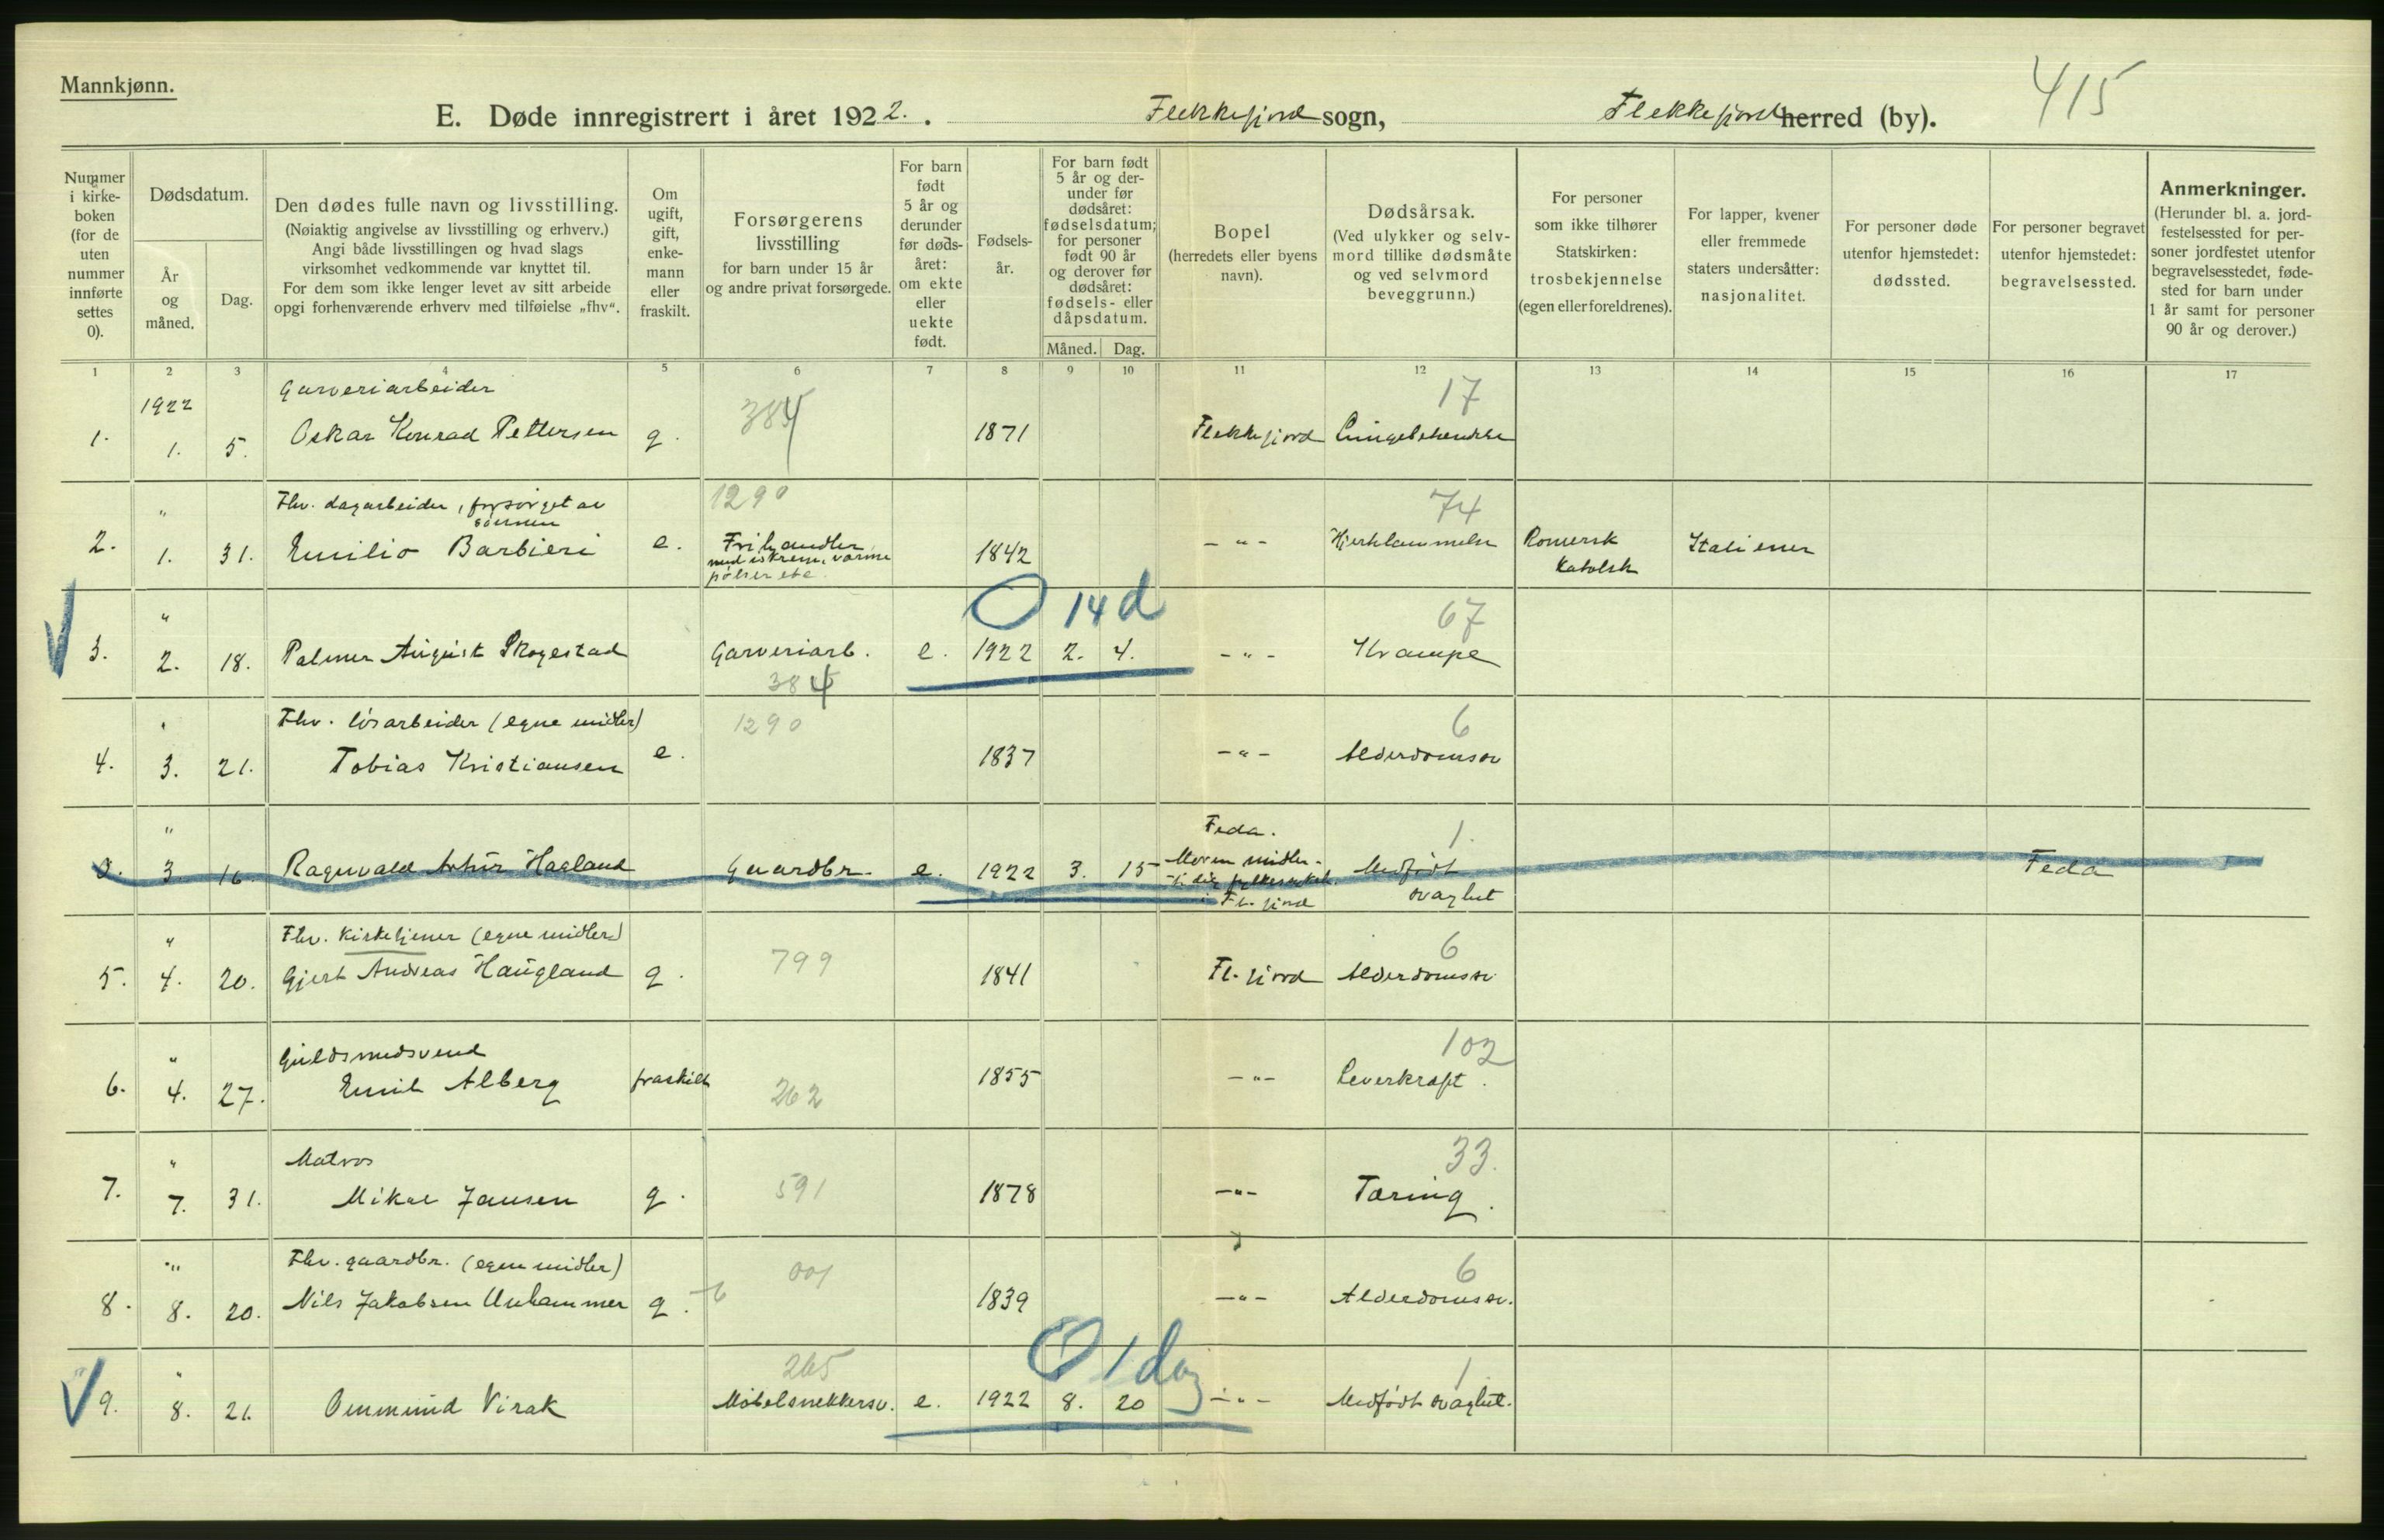 Mannkjønn.
415
E. Døde innregistrert i året 1922. . Flekkefjord sogn, Flekkefjord herred (by).
Nummer i kirke-boken (for de uten nummer innførte settes 0).
Dødsdatum.
År og måned.
Dag.
Den dødes fulle navn og livsstilling.
(Nøiaktig angivelse av livsstilling og erhverv.)
Angi både livsstillingen og hvad slags
virksomhet vedkommende var knyttet til.
For dem som ikke lenger levet av sitt arbeide
opgi forhenværende erhverv med tilføielse „fhv“.
Om ugift, gift, enke-mann eller fraskilt.
Forsørgerens livsstilling
for barn under 15 år
og andre privat forsørgede.
For barn født 5 år og derunder før døds-året: om ekte eller uekte født.
Fødsels-år.
For barn født 5 år og der-under før dødsåret: fødselsdatum; for personer født 90 år og derover før dødsåret: fødsels- eller dåpsdatum.
Måned.
Dag.
Bopel
(herredets eller byens navn).
Dødsårsak.
(Ved ulykker og selv-mord tillike dødsmåte og ved selvmord beveggrunn.)
For personer som ikke tilhører Statskirken: trosbekjennelse (egen eller foreldrenes).
For lapper, kvener eller fremmede staters undersåtter: nasjonalitet.
For personer døde utenfor hjemstedet: dødssted.
For personer begravet utenfor hjemstedet: begravelsessted.
Anmerkninger.
(Herunder bl. a. jord-festelsessted for per-soner jordfestet utenfor begravelsesstedet, føde-sted for barn under 1 år samt for personer 90 år og derover.)
1 2 3 4 5 6 7 8 9 10 11 12 13 14 15 16 17
1922 Garveriarbeider 384 17
1. 1. 5. Oskar Konrad Pettersen g. 1871 Flekkefjord Lungebetendelse
" Fhv. dagarbeider, forsørget av sønnen 1290 74
2. 1. 31. Emilio Barbieri e. Frihandler med iskrem, varme pølser etc. 1842 -"- Hjertelammelse Romersk katolsk Italiener
" 0 14 d 67
3. 2. 18. Palmer August Skogestad Garveriarb. e. 1922 2. 4. -"- Krampe
384
" Fhv. løsarbeider (egne midler) 1290 6
4. 3. 21. Tobias Kristiansen e. 1837 -"- Alderdomssv
" Feda. 1.
0. 3. 16. Ragnvald Arthur Haaland Gaardbr. e. 1922 3. 15 Moren midler-tidig i Fl. fjord Medfødt svaghet Feda
" Fhv. kirketjener (egne midler) 799 6
5. 4. 20. Gjert Andreas Haugland g. 1841 Fl. fjord Alderdomssv.
" Guldsmedsvend 102
6. 4. 27. Emil Alberg fraskilt 262 1855 -"- Leverkræft.
" Matros 33.
7. 7. 31. Mikal Jansen g. 591 1878 -"- Tæring.
" Fhv. gaardbr. (egne midler) 001 6
8. 8. 20. Nils Jakobsen Unhammer g. 6 1839 -"- Alderdomssv.
" 265 0 1 dag 1
9. 8. 21. Ommund Virak Møbelsnekkersv. e. 1922 8. 20 -"- Medfødt svaghet.